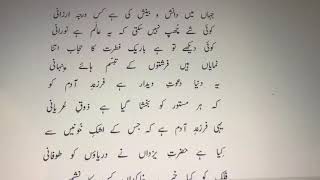 جہاں میں دانش و بینش کی ہے کس درجہ ارزانی
کوئی شے چھپ نہیں سکتی کہ یہ عالم ہے نورانی
کوئی دیکھے تو ہے باریک فطرت کا حجاب اتنا
نمایاں ہیں فرشتوں کے تبسّم ہائے پنہانی
یہ دنیا دعوتِ دیدار ہے فرزندِ آدم کو
کہ ہر مستور کو بخشا گیا ہے ذوقِ عریانی
یہی فرزندِ آدم ہے کہ جس کے اشکِ خونیں سے
کِیا ہے حضرتِ یزداں نے دریاؤں کو طوفانی
فلک کو کیا خبر یہ خاکداں کس کا نشیمن